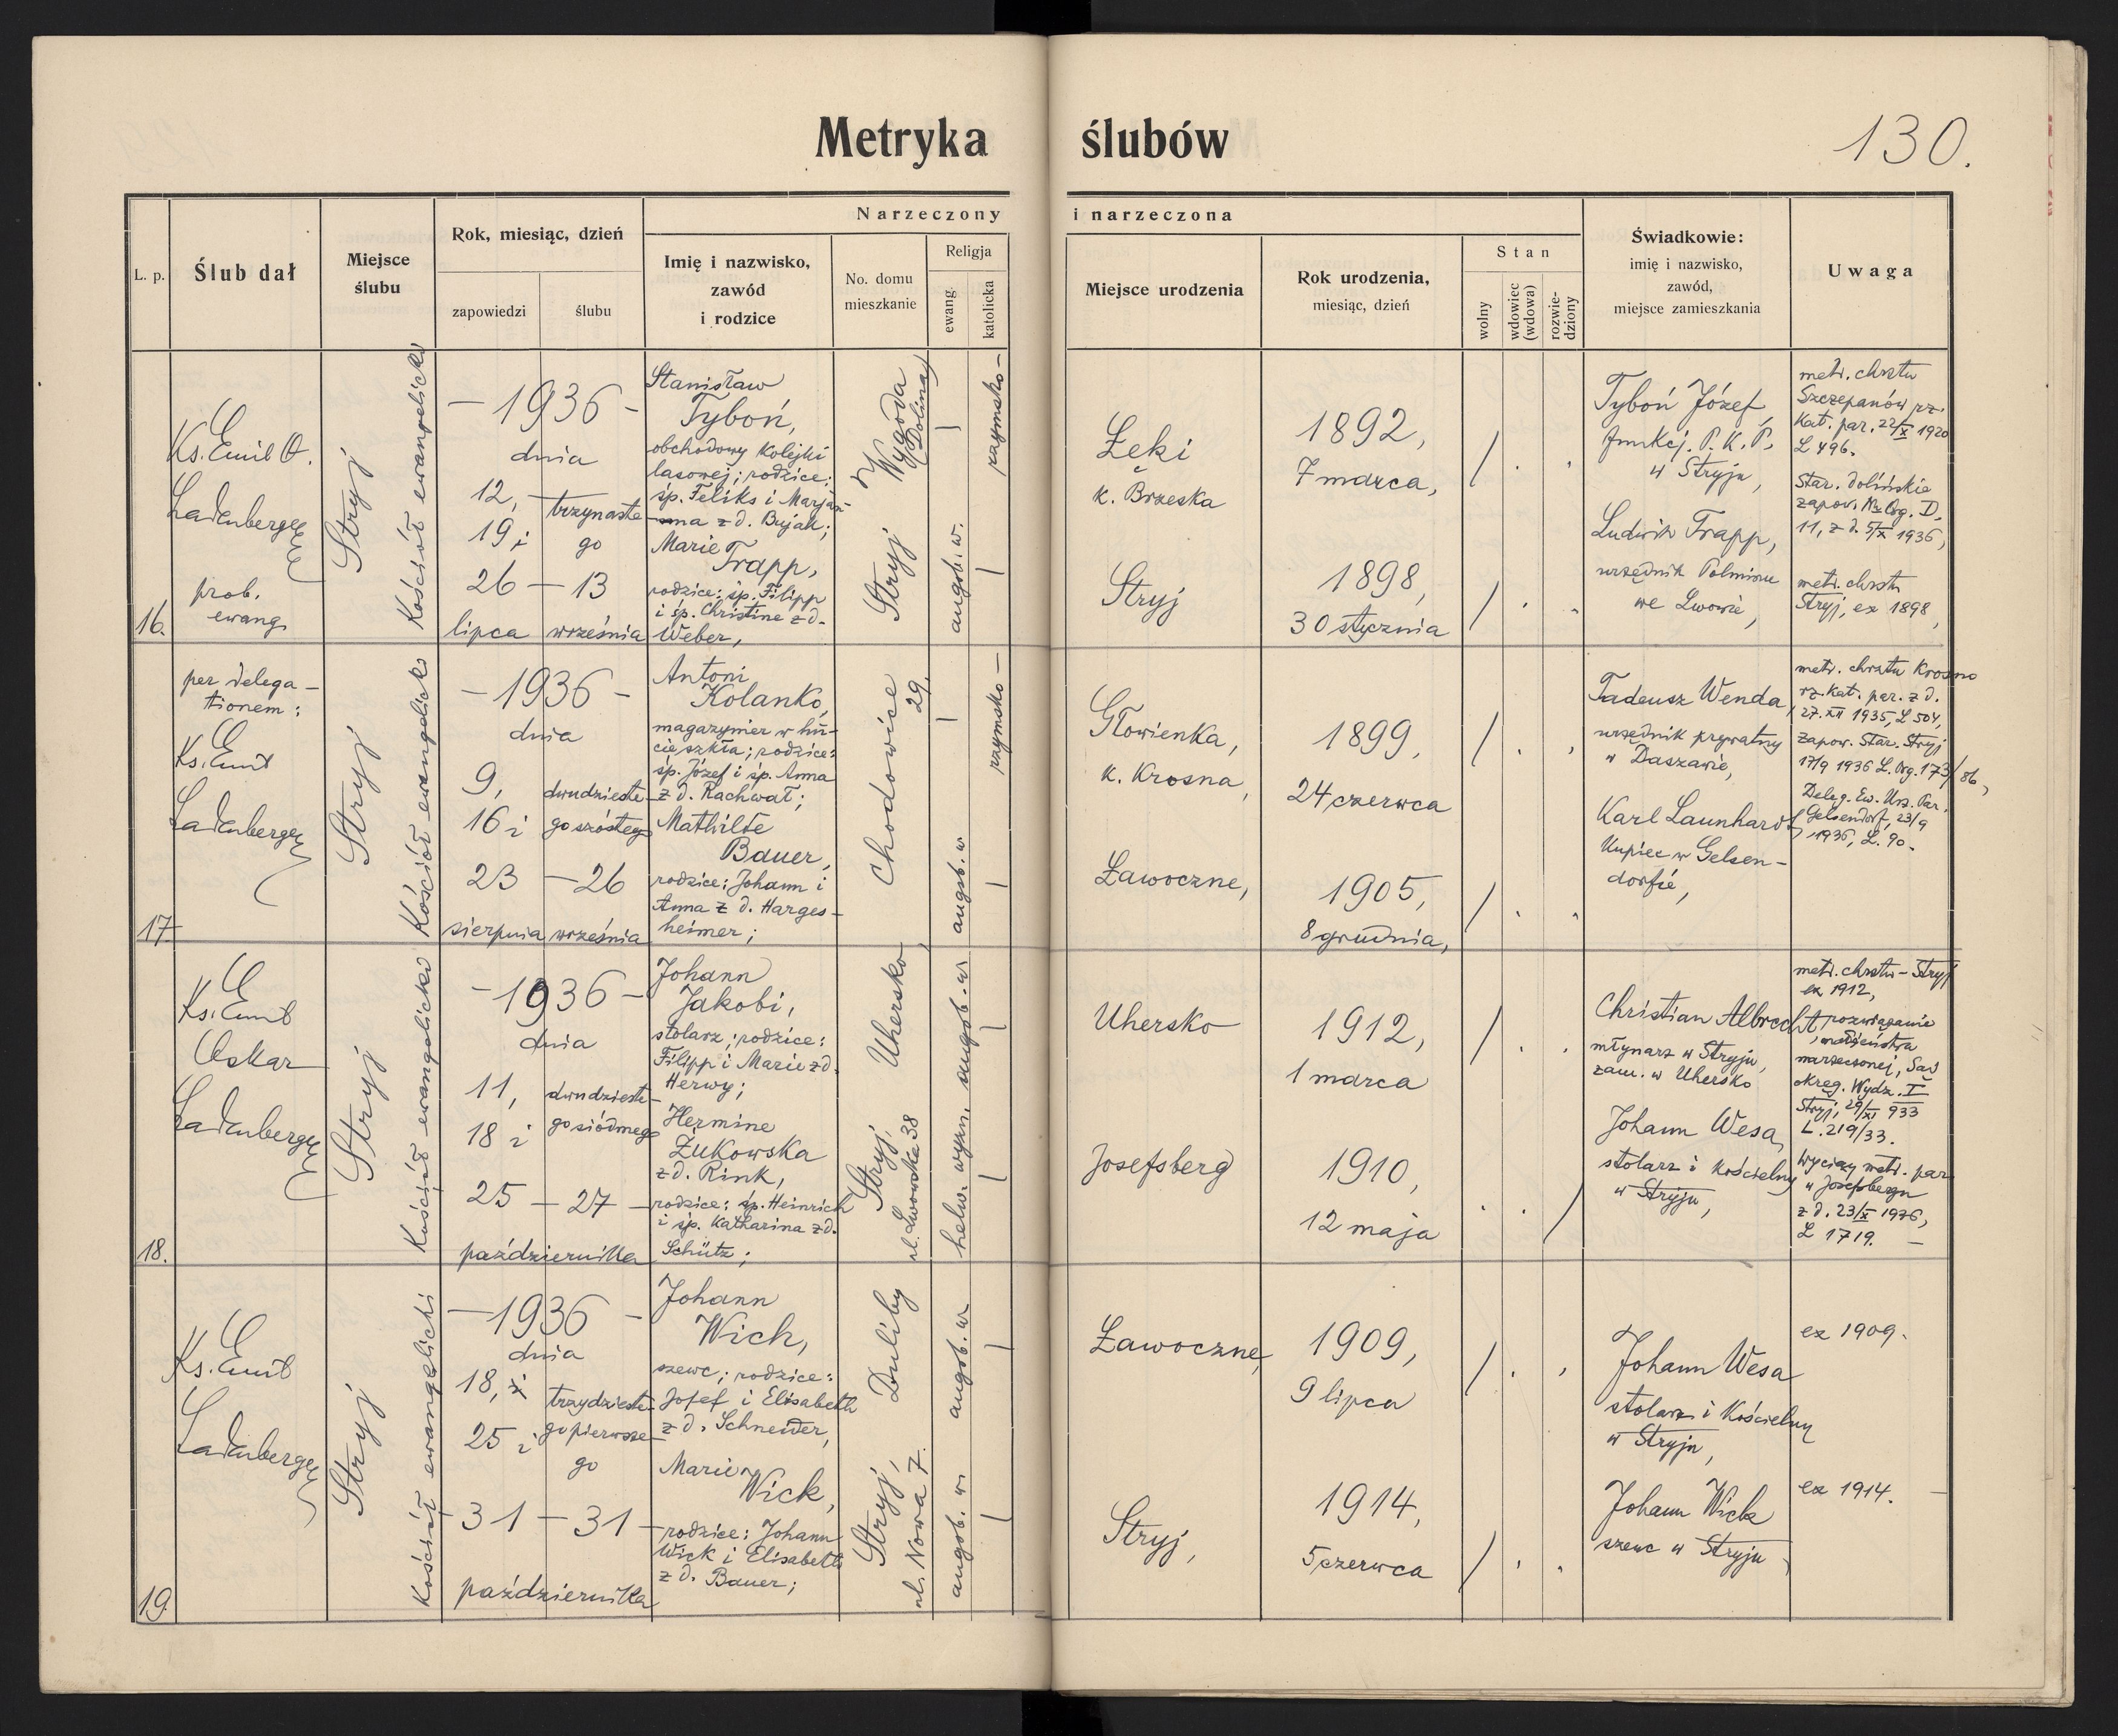 Metryka ślubów
130.
L. p.
Ślub dał
Miejsce
ślubu
Rok, miesiąc, dzień
zapowiedzi
ślubu
Narzeczony i narzeczona
Imię i nazwisko,
zawód
i rodzice
No. domu
mieszkanie
Religja
ewang.
katolicka
Miejsce urodzenia
Rok urodzenia,
miesiąc, dzień
Stan
wolny
wdowiec
(wdowa)
rozwie-
dziony
Świadkowie:
imię i nazwisko,
zawód,
miejsce zamieszkania
Uwaga
16.
Ks. Emil O.
Ladenberger
prob.
ewang.
Stryj
Kościół ewangelicki
- 1936 -
dnia
12,
19 i
26
lipca
trzynaste-
go
- 13
września
Stanisław
Tyboń,
obchodowy Kolejki
lasowej; rodzice:
śp. Feliks i Marjan-
na z d. Bujak;
Marie
Trapp,
rodzice: śp. Filipp
i śp. Christine z d.
Weber,
Wygoda
(Dolina)
Stryj
rzymsko -
augsb. w.
Łęki
k. Brzeska
Stryj
1892,
7 marca,
1898,
30 stycznia
Tyboń Józef,
funkcj. P. K. P.
w Stryju,
Ludwik Trapp,
urzędnik Polminu
we Lwowie,
metr. chrztu
Szczepanów rz.
Kat. par. 22/X 1920
L 496.
Star. dolińskie
zapow. Nr Org. D.
11, z d. 5/X 1936,
metr. chrztu
Stryj, ex 1898,
17.
per delega-
tionem:
Ks. Emil
Ladenberger
Stryj
Kościół ewangelicki
- 1936 -
dnia
9,
16 i
23
sierpnia
dwudzieste-
go szóstego
- 26
września
Antoni
Kolanko,
magazynier w hu-
cie szkła; rodzice:
śp. Józef i śp. Anna
z d. Rachwał;
Mathilde
Bauer,
rodzice: Johann i
Anna z d. Harges-
heimer;
Chodowice
29.
rzymsko -
augsb. w
Głowienka,
k. Krosna,
Ławoczne,
1899,
24 czerwca
1905,
8 grudnia,
Tadeusz Wenda,
urzędnik prywatny
w Daszawie,
Karl Launhardt,
Kupiec w Gelsen-
dorfie,
metr. chrztu Krosno
rz. kat. par. z d.
27. XII 1935, L 504,
Zapow. Star. Stryj
17/9 1936 L. Org. 173/86,
Deleg. Ew. Urz. Par.
Gelsendorf, 23/9
1936, L. 90.
18.
Ks. Emil
Oskar
Ladenberger
Stryj
Kościół ewangelicki
- 1936 -
dnia
11,
18 i
25
dwudzieste-
go siódmego
- 27 -
października
Johann
Jakobi,
stolarz; rodzice:
Filipp i Marie z d.
Herwy;
Hermine
Żukowska
z d. Rink,
rodzice: śp. Heinrich
i śp. Katharina z d.
Schütz;
Uhersko,
Stryj,
ul. Lwowska 38
augsb. w
helw. wyzn.
Uhersko
Josefsberg
1912,
1 marca
1910,
12 maja
Christian Albrecht,
młynarz w Stryju,
zam. w Uhersko
Johann Wesa,
stolarz i kościelny
w Stryju,
metr. chrztu - Stryj
ex 1912,
rozwiązanie
małżeństwa
narzeczonej, Sąd
okręg. Wydz. I
Stryj, 29/XI 933
L. 219/33.
Wyciąg metr. par.
w Josefsbergu
z d. 23/X 1936,
L 1719. -
19.
Ks. Emil
Ladenberger
Stryj
Kościół ewangelicki
- 1936 -
dnia
18,
25 i
31
trzydzieste-
go pierwsze-
go
- 31 -
października
Johann
Wick,
szewc; rodzice:
Josef i Elisabeth
z d. Schneider,
Marie
Wick,
rodzice: Johann
Wick i Elisabeth
z d. Bauer;
Duliby
Stryj,
ul. Nowa 7.
augsb. w
augsb. w
Ławoczne,
Stryj,
1909,
9 lipca
1914,
5 czerwca
Johann Wesa
stolarz i Kościelny
w Stryju,
Johann Wick
szewc w Stryju,
ex 1909.
ex 1914. -